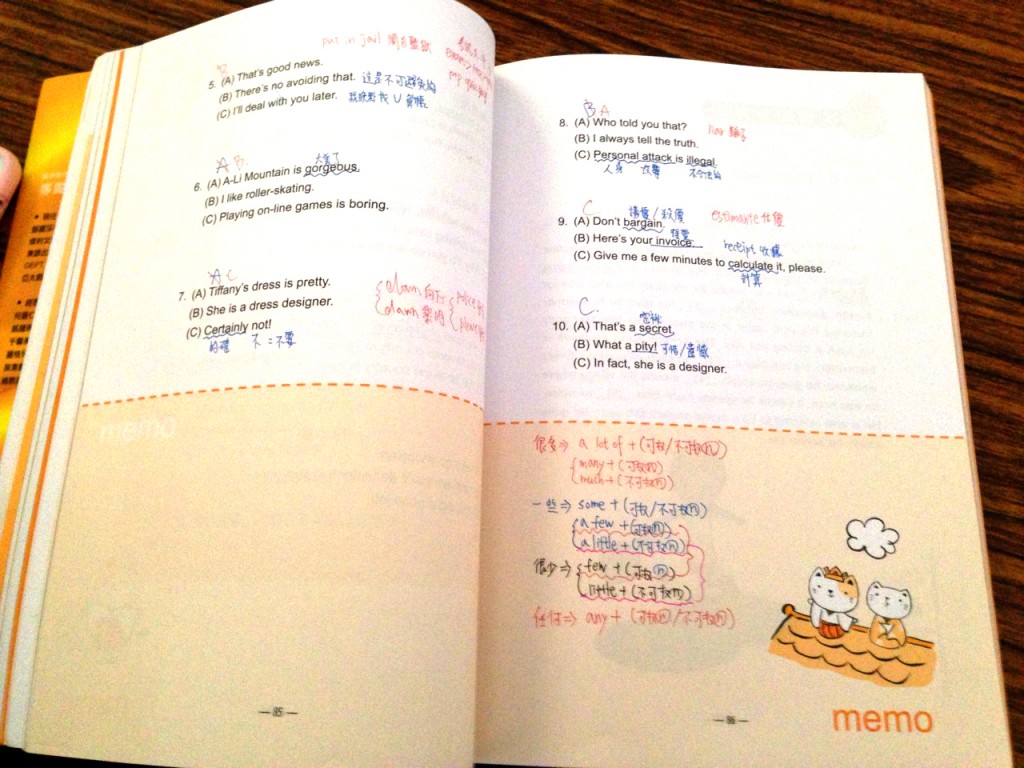 put in jail 關在監獄
5. (A) That's good news.
(B) There's no avoiding that. 這是不可避免的
(C) I'll deal with you later.
A B.
6. (A) A-Li Mountain is gorgebus.
(B) I like roller-skating.
(C) Playing on-line games is boring.
A C
7. (A) Tiffany's dress is pretty.
(B) She is a dress designer.
(C) Certainly not!
的確 不=不要
memo
— 85 —
B A
8. (A) Who told you that? liar 騙子
(B) I always tell the truth.
(C) Personal attack is illegal.
人身 攻擊 不合法的
C
estimate 估價
9. (A) Don't bargain.
發票
(B) Here's your invoice. receipt 收據
(C) Give me a few minutes to calculate it, please.
計算
C.
10. (A) That's a secret.
(B) What a pity! 可惜/遺憾
(C) In fact, she is a designer.
很多⇒ a lot of + (可數/不可數n)
many + (可數n)
much + (不可數n)
一些⇒ some + (可數/不可數n)
a few + (可數n)
a little + (不可數n)
很少⇒ few + (可數n)
little + (不可數n)
任何⇒ any + (可數n/不可數n)
memo
— 86 —